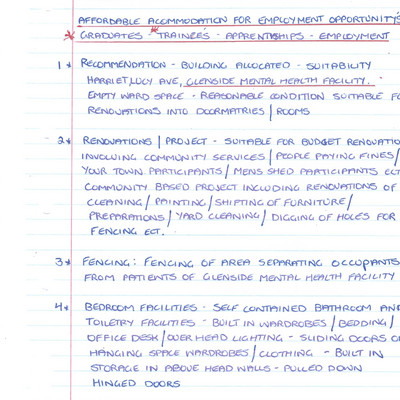 AFFORDABLE ACCOMMODATION FOR EMPLOYMENT OPPORTUNITY'S
* GRADUATES - * TRAINEES - APPRENTISHIPS - EMPLOYMENT
1 * RECOMMENDATION - BUILDING ALLOCATED - SUITABILITY
HARRIET, LUCY AVE, GLENSIDE MENTAL HEALTH FACILITY.
EMPTY WARD SPACE - REASONABLE CONDITION SUITABLE FO
RENOVATIONS INTO DOORMATRIES / ROOMS
2 * RENOVATIONS / PROJECT - SUITABLE FOR BUDGET RENOVATIO
INVOLVING COMMUNITY SERVICES / PEOPLE PAYING FINES /
YOUR TOWN PARTICIPANTS / MENS SHED PARTICIPANTS ECT
COMMUNITY BASED PROJECT INCLUDING RENOVATIONS OF
CLEANING / PAINTING / SHIFTING OF FURNITURE /
PREPARATIONS / YARD CLEANING / DIGGING OF HOLES FOR
FENCING ECT.
3 * FENCING: FENCING OF AREA SEPARATING OCCUPANTS
FROM PATIENTS OF GLENSIDE MENTAL HEALTH FACILITY
4 * BEDROOM FACILITIES - SELF CONTAINED BATHROOM AND
TOILETRY FACILITIES - BUILT IN WARDROBES / BEDDING /
OFFICE DESK / OVER HEAD LIGHTING - SLIDING DOORS O
HANGING SPACE WARDROBES / CLOTHING - BUILT IN
STORAGE IN ABOVE HEAD WALLS - PULLED DOWN
HINGED DOORS